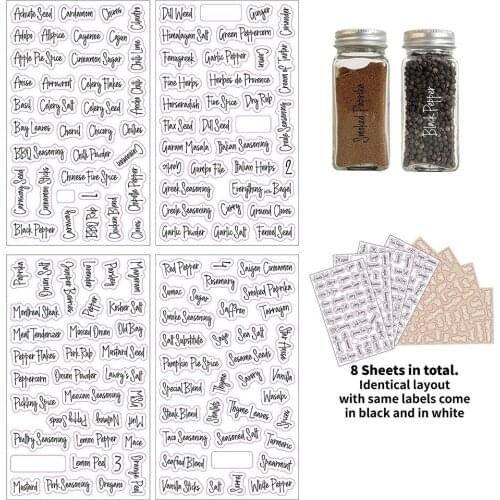 Achiote Seed Cardamom Chives
Adobo Allspice Cayenne Cajun
Apple Pie Spice Cinnamon Sugar
Anise Arrowroot Celery Flakes
Basil Celery Salt Celery Seed
Bay Leaves Chervil Chicory Chilies
BBQ Seasoning Chili Powder Cinnamon
Chinese Five Spice
Caraway Seed Cinnamon Sticks
Caraway BBQ Rub 1 Chicken Blend Cloves Chipotle Pepper
Black Pepper
Cilantro
Chili Lime
Dill Weed Ginger Coriander
Himalayan Salt Green Peppercorn
Fenugreek Garlic Pepper Cream of Tartar
Fine Herbs Herbes de Provence
Horseradish Fine Spice Dry Rub
Flax Seed Dill Seed Creole Seasoning
Garam Masala Italian Seasoning
Garlic Gumbo File Italian Herbs 2
Greek Seasoning Everything Bagel
Creole Seasoning Curry Ground Cloves
Garlic Powder Garlic Salt Fennel Seed
Smoked Paprika
Black Pepper
Paprika Onion Salt Lavender Parsley Marjoram
Pepper
Montreal Steak Kosher Salt
Meat Tenderizer Minced Onion Old Bay
Pepper Flakes Pork Rub Mustard Seed
Peppercorn Onion Powder Lawry's Salt
Pickling Spice Mexican Seasoning
Nutmeg
Poultry Seasoning Lemon Pepper Mace
Lemon Peel 3 Orange Peel
Mustard Pork Seasoning Oregano
Red Pepper 4 Saigon Cinnamon
Sumac Sugar Rosemary Smoked Paprika
Smoke Seasoning Saffron Tarragon
Salt Substitute Sage Sea Salt
Pumpkin Pie Spice Sesame Seeds Turkey Rub
Special Blend Thyme Savory Vanilla
Steak Blend Shallots Thyme Leaves Wasabi
Spices
Taco Seasoning Seasoned Salt Turmeric
Seafood Blend Spearmint
Vanilla Sticks Salt White Pepper
8 Sheets in total.
Identical layout
with same labels come
in black and in white